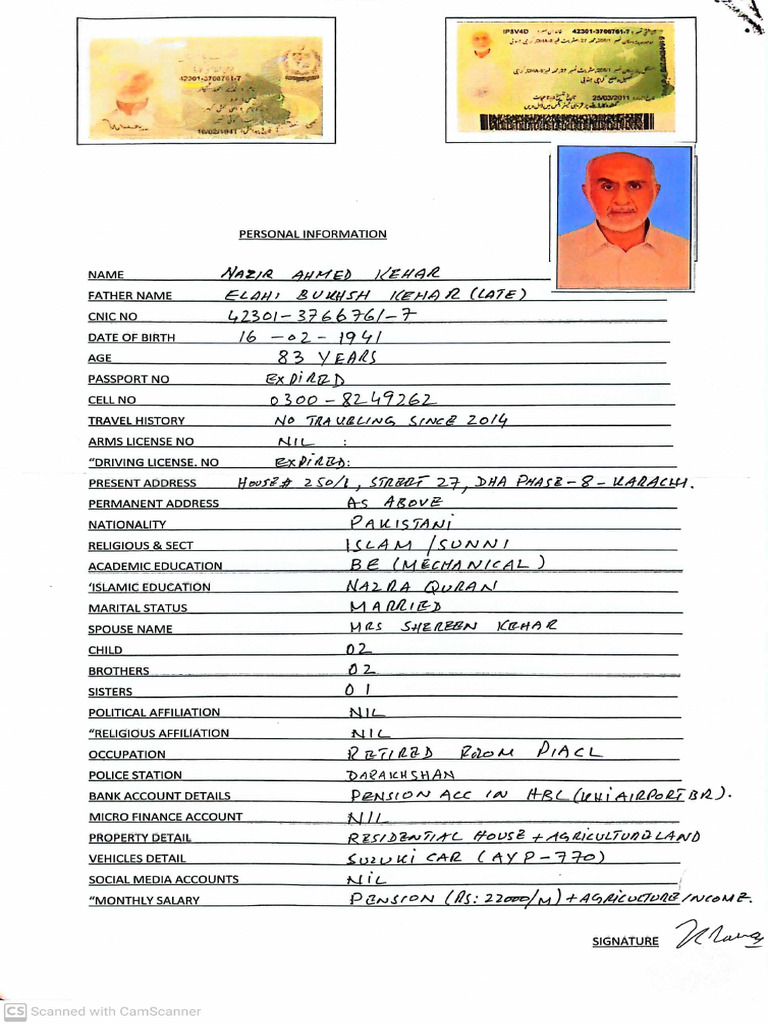 42301-3766761-7
16/02/1941
IPSV4D
42301-3766761-7
25/03/2011
PERSONAL INFORMATION
NAME NAZIR AHMED KEHAR
FATHER NAME ELAHI BUKHSH KEHAR (LATE)
CNIC NO 42301-3766761-7
DATE OF BIRTH 16-02-1941
AGE 83 YEARS
PASSPORT NO EXPIRED
CELL NO 0300-8249262
TRAVEL HISTORY NO TRAVELING SINCE 2014
ARMS LICENSE NO NIL :
“DRIVING LICENSE. NO EXPIRED:
PRESENT ADDRESS HOUSE# 250/1, STREET 27, DHA PHASE-8-KARACHI.
PERMANENT ADDRESS AS ABOVE
NATIONALITY PAKISTANI
RELIGIOUS & SECT ISLAM /SUNNI
ACADEMIC EDUCATION BE (MECHANICAL)
‘ISLAMIC EDUCATION NAZRA QURAN
MARITAL STATUS MARRIED
SPOUSE NAME MRS SHEREEN KEHAR
CHILD 02
BROTHERS 02
SISTERS 01
POLITICAL AFFILIATION NIL
“RELIGIOUS AFFILIATION NIL
OCCUPATION RETIRED FROM PIACL
POLICE STATION DARAKHSHAN
BANK ACCOUNT DETAILS PENSION ACC IN HBL (KHI AIRPORT BR).
MICRO FINANCE ACCOUNT NIL
PROPERTY DETAIL RESIDENTIAL HOUSE + AGRICULTURE LAND
VEHICLES DETAIL SUZUKI CAR (AYP-770)
SOCIAL MEDIA ACCOUNTS NIL
“MONTHLY SALARY PENSION (RS: 22000/M) + AGRICULTURE INCOME.
SIGNATURE
CS Scanned with CamScanner